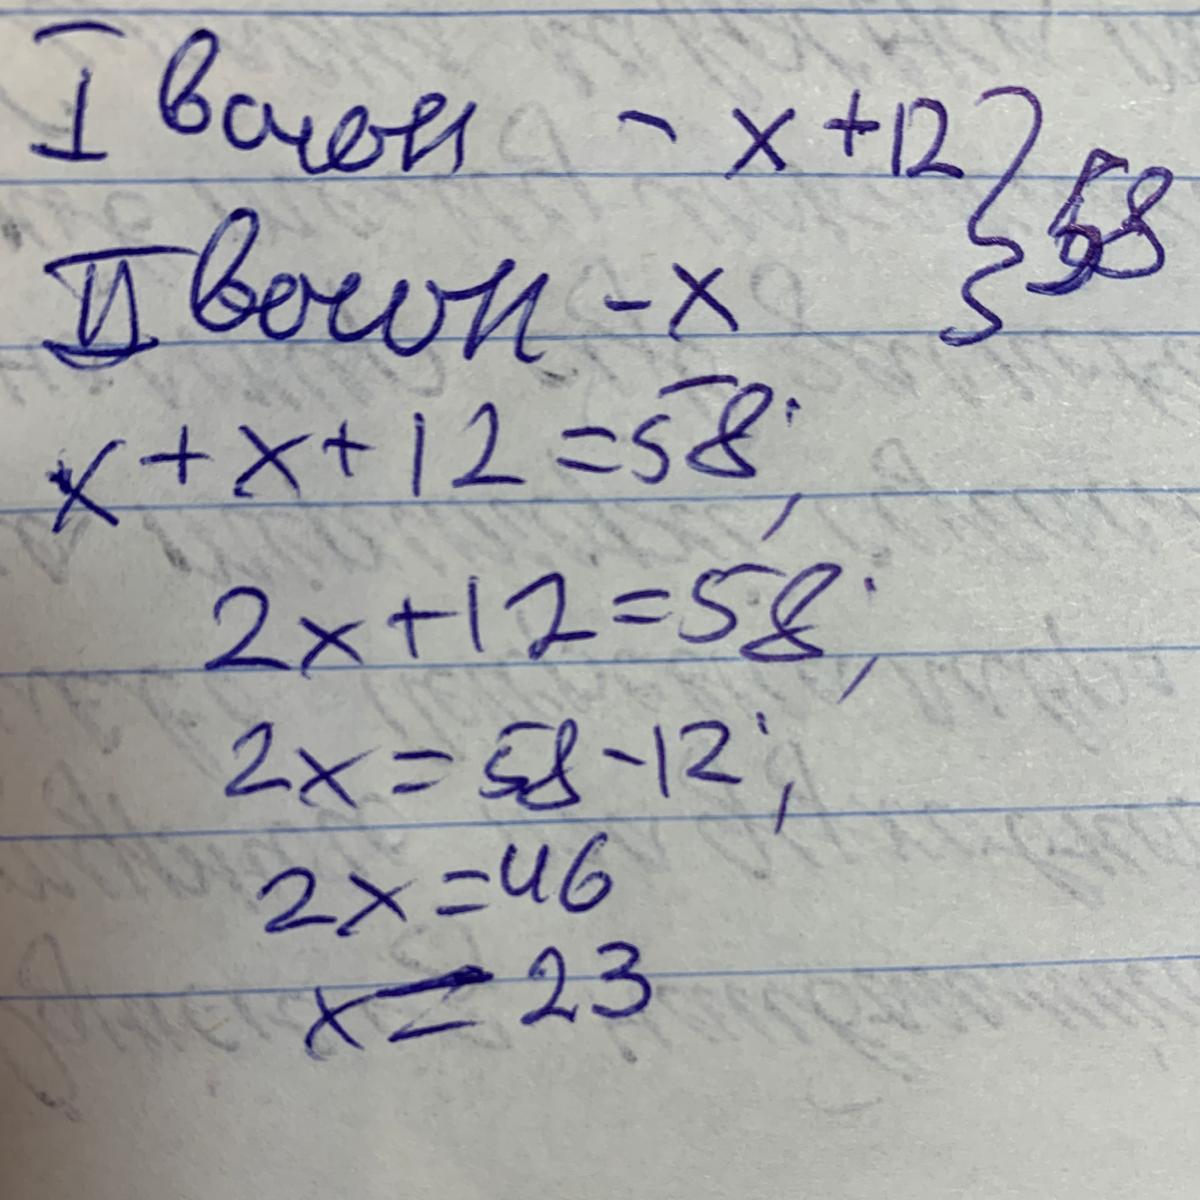 I вагон - x + 12 } 58
II вагон - x
x + x + 12 = 58;
2x + 12 = 58;
2x = 58 - 12;
2x = 46
x = 23